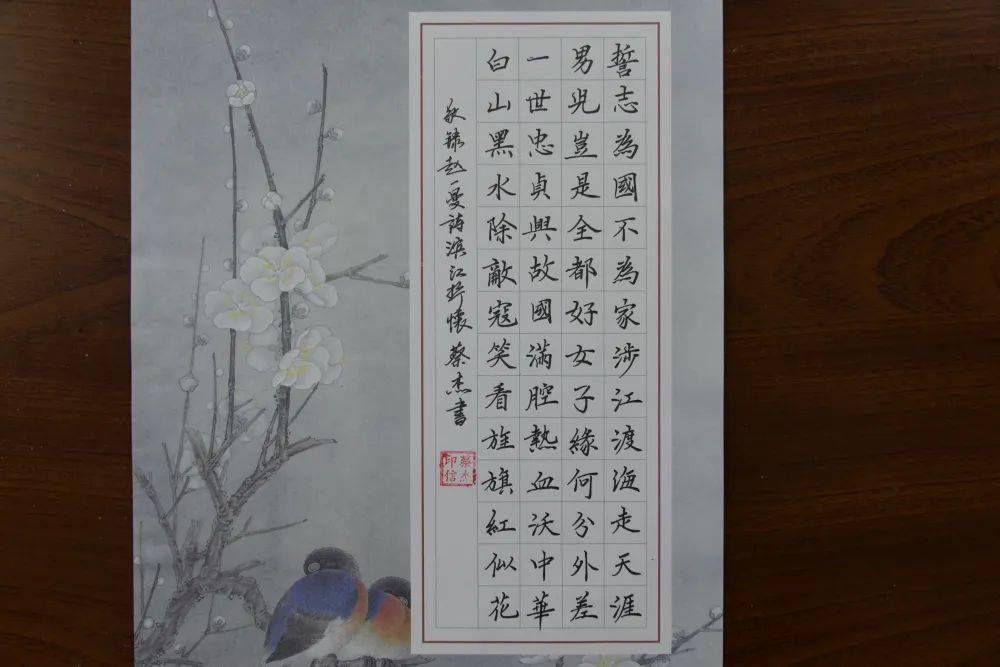 誓志為國不為家涉江渡海走天涯
男兒豈是全都好女子緣何分外差
一世忠貞興故國滿腔熱血沃中華
白山黑水除敵寇笑看旌旗紅似花
敬錄趙一曼詩濱江抒懷蔡杰書
蔡杰印信